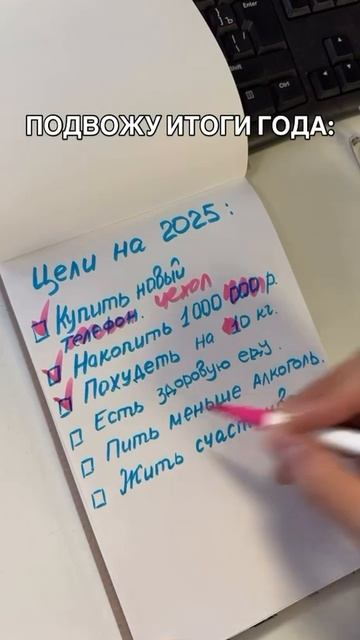 ПОДВОЖУ ИТОГИ ГОДА:
Цели на 2025:
Купить новый
телефон. чехол
Накопить 1000 000 р.
Похудеть на 10 кг.
Есть здоровую еду.
Пить меньше алкоголь.
Жить
Enter
Shift